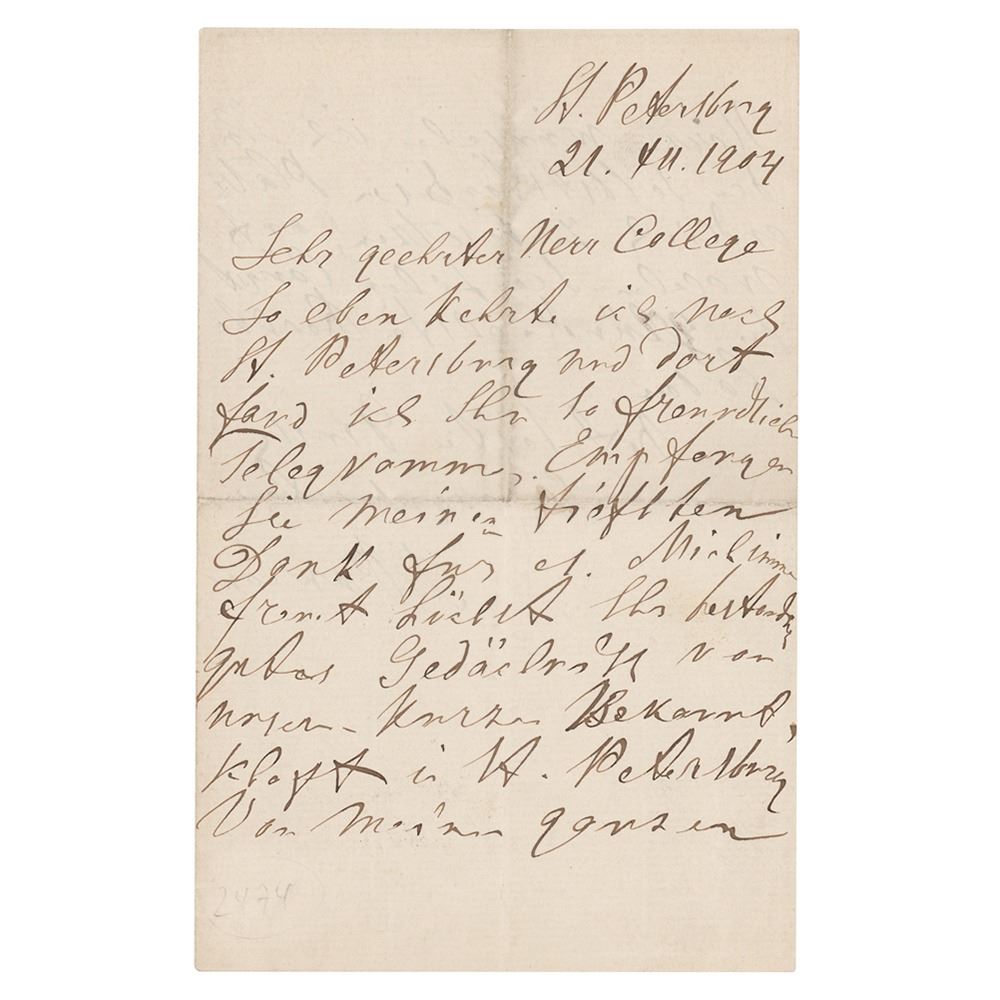 St. Petersburg
21. XII. 1904
Sehr geehrter Herr College
So eben kehrte ich nach
St. Petersburg und dort
fand ich Ihr so freundliche
Telegramm. Empfangen
Sie meinen tiefsten
Dank für es. Mich immer
freut höchst Ihr beständig
gutes Gedächniss von
unsern kurzen Bekannt,
schaft in St. Petersburg
Von meinen ganzen
2474